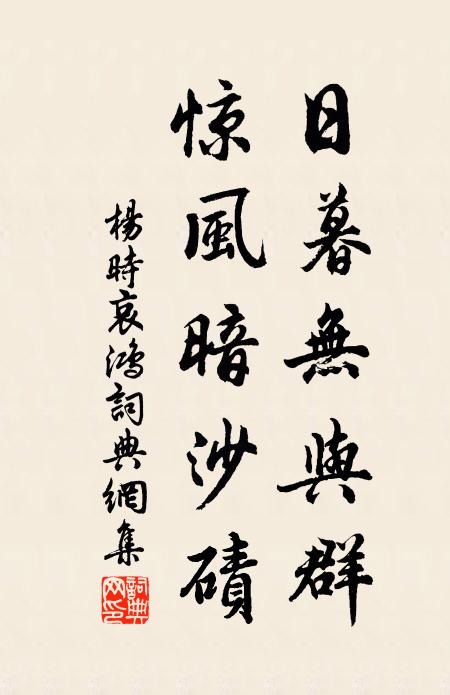 日暮無與群
惊風暗沙磧
楊時哀鴻詞典網集
詞典網印